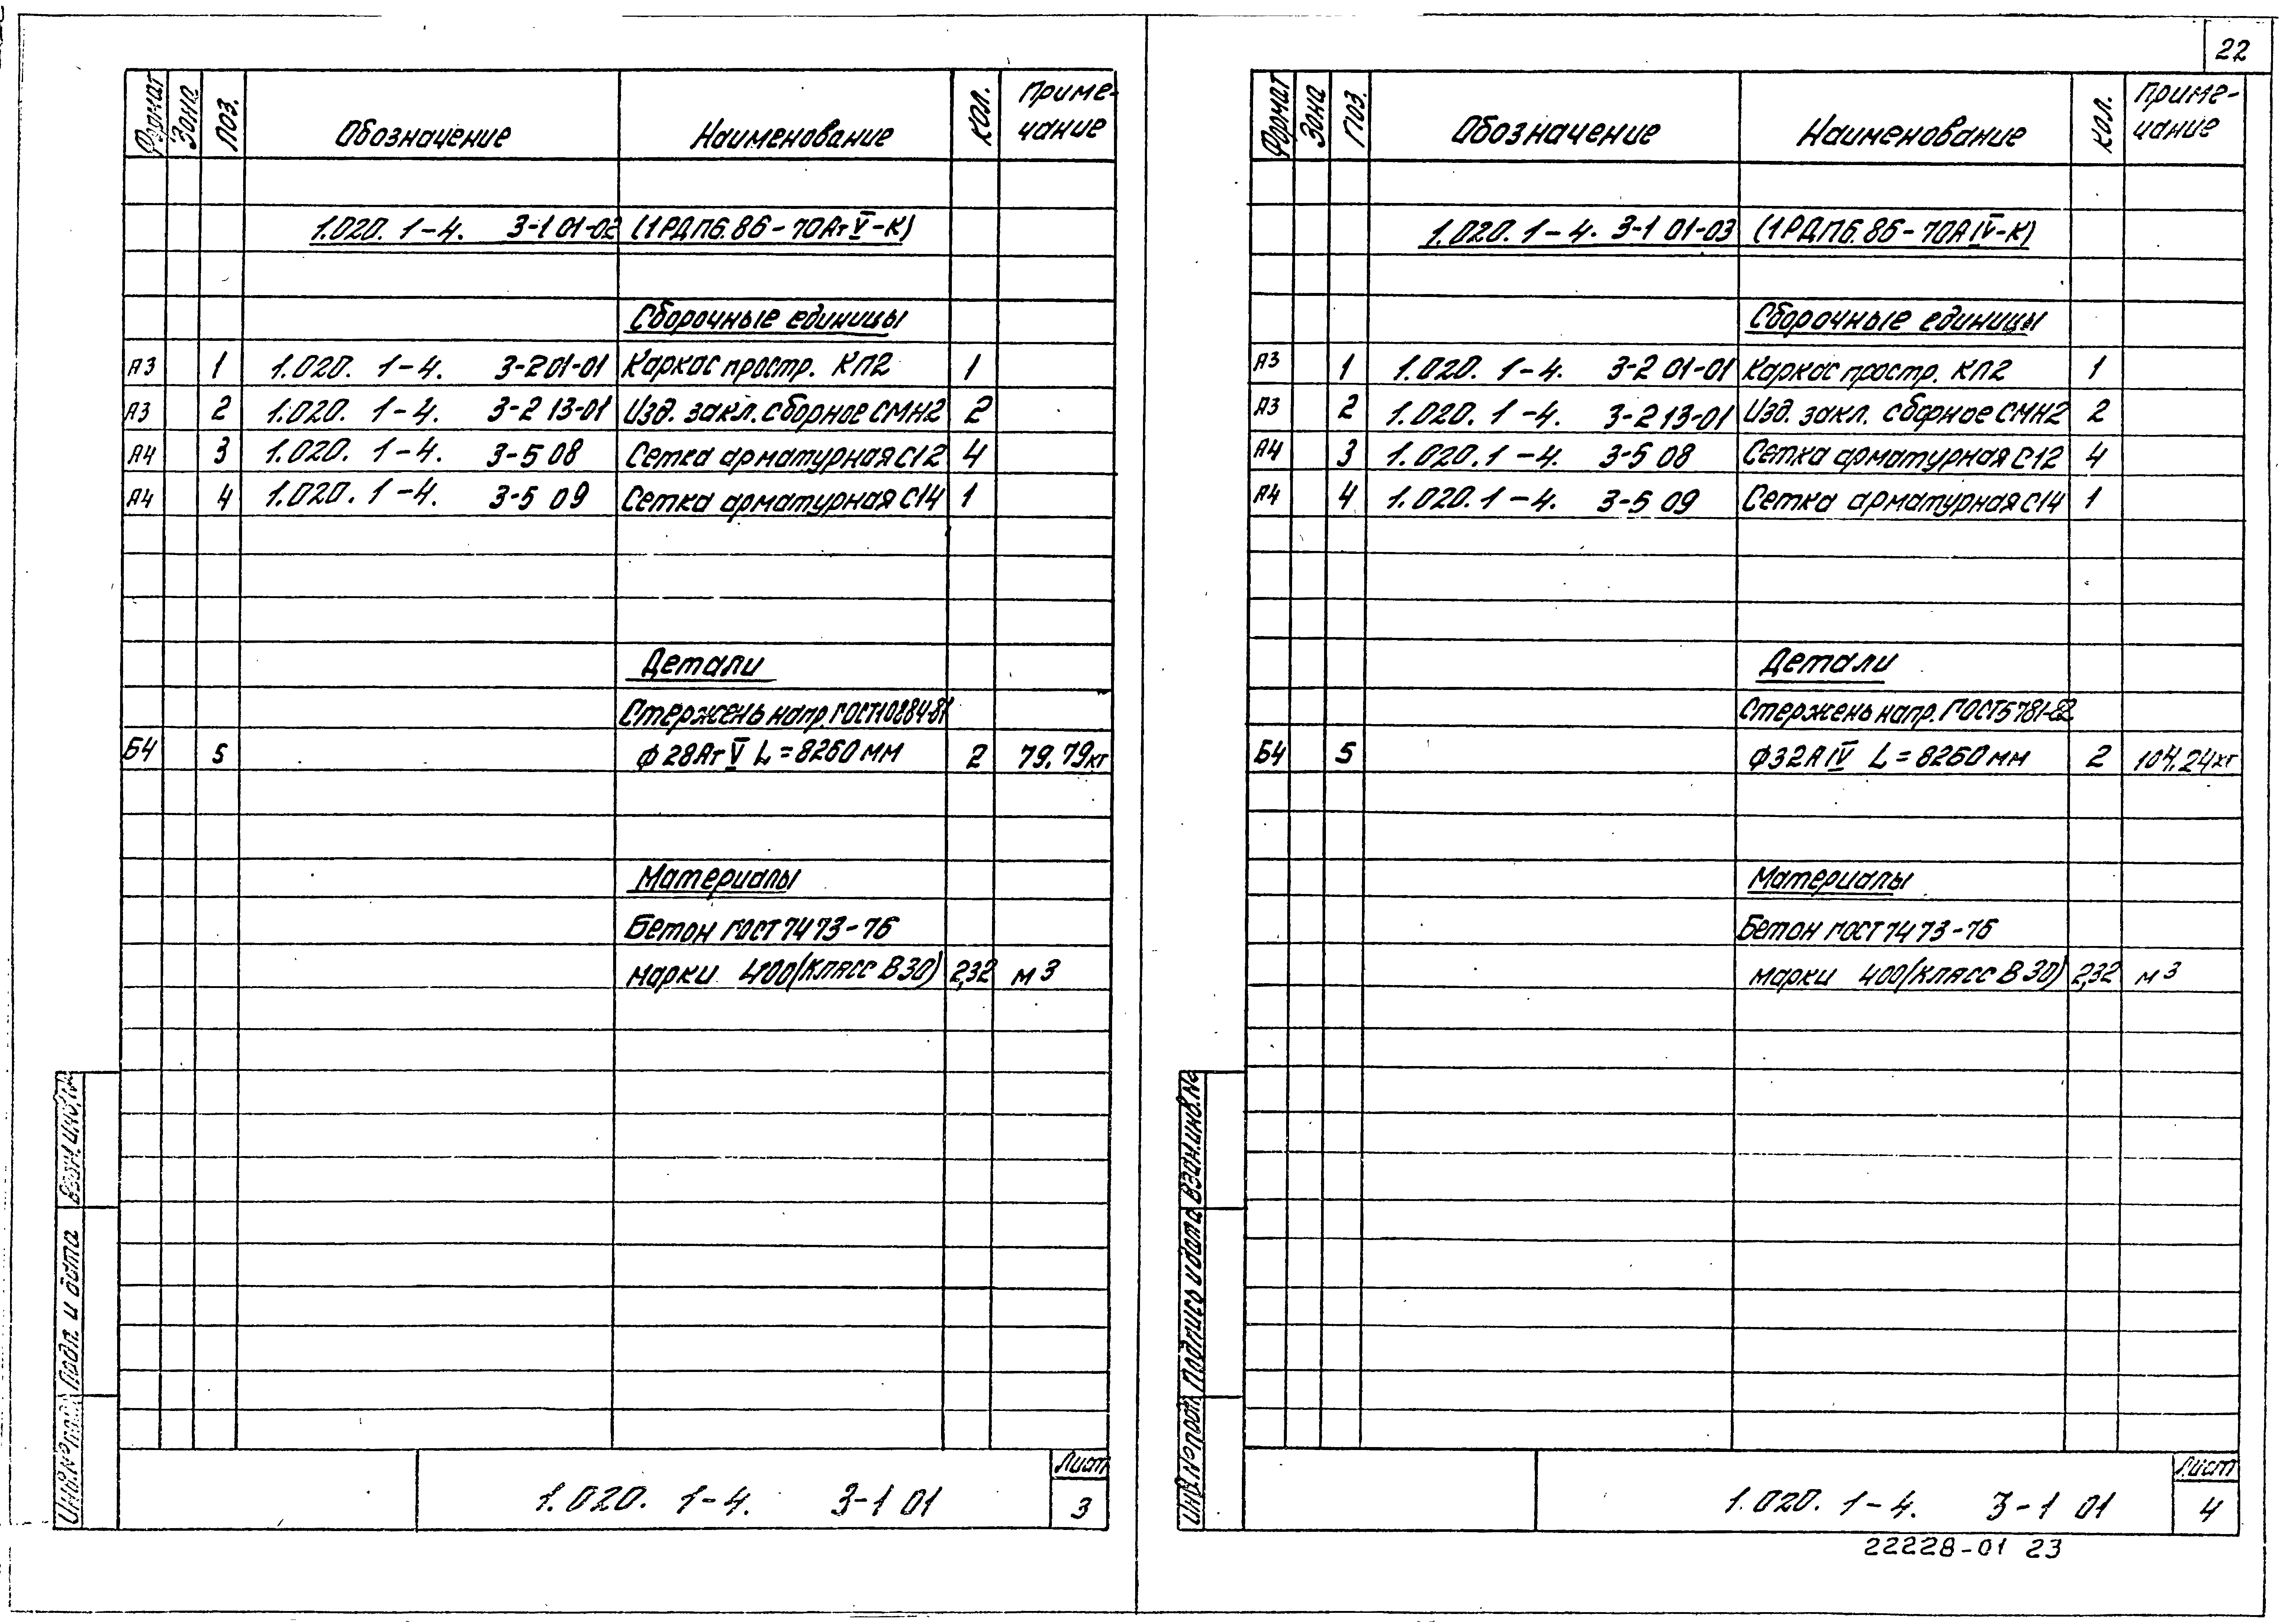 22
Формат Зона Поз. Обозначение Наименование Кол. Приме-
чание
1.020. 1-4. 3-1 01-02 (1РДП6.86-70АтV-К)
Сборочные единицы
А3 1 1.020. 1-4. 3-2 01-01 Каркас простр. КП2 1
А3 2 1.020. 1-4. 3-2 13-01 Изд. закл. сборное СМН2 2
А4 3 1.020. 1-4. 3-5 08 Сетка арматурная С12 4
А4 4 1.020. 1-4. 3-5 09 Сетка арматурная С14 1
Детали
Стержень напр. ГОСТ10884-81
Б4 5 ф28АтV L=8260мм 2 79.79кг
Материалы
Бетон ГОСТ7473-76
марки 400(класс В30) 2,32 м3
Инв.№подл. Подп. и дата Взам.инв.№
1.020. 1-4. 3-1 01
Лист
3
Формат Зона Поз. Обозначение Наименование Кол. Приме-
чание
1.020. 1-4. 3-1 01-03 (1РДП6.86-70АIV-К)
Сборочные единицы
А3 1 1.020. 1-4. 3-2 01-01 Каркас простр. КП2 1
А3 2 1.020. 1-4. 3-2 13-01 Изд. закл. сборное СМН2 2
А4 3 1.020. 1-4. 3-5 08 Сетка арматурная С12 4
А4 4 1.020. 1-4. 3-5 09 Сетка арматурная С14 1
Детали
Стержень напр. ГОСТ5781-82
Б4 5 ф32АIV L=8260мм 2 104.24кг
Материалы
Бетон ГОСТ7473-76
марки 400(класс В30) 2,32 м3
Инв.№подл. Подпись и дата Взам.инв.№
1.020. 1-4. 3-1 01
Лист
4
22228-01 23